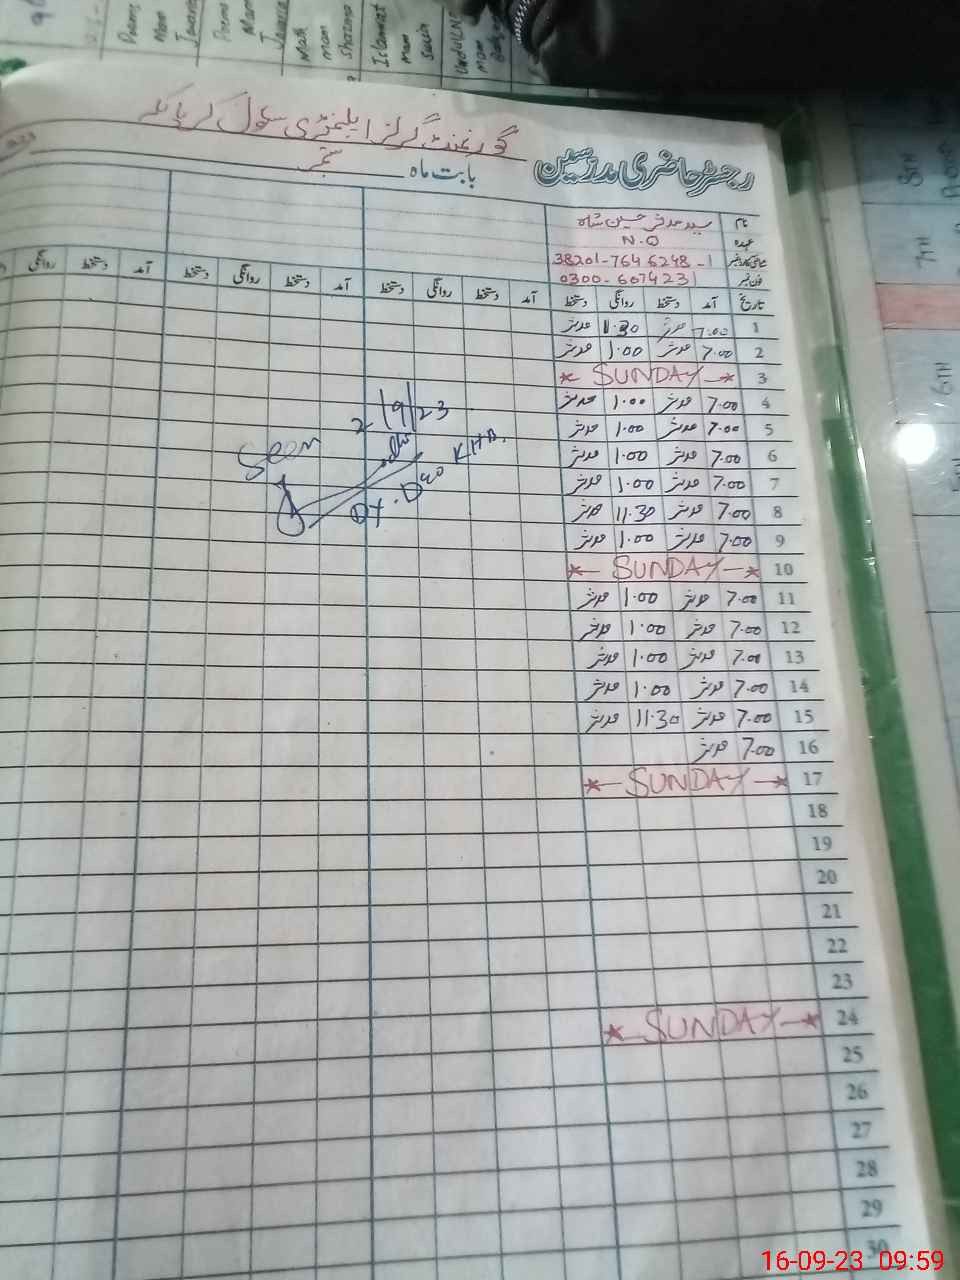 گورنمنٹ گرلز ایلیمنٹری سکول
رجسٹر حاضری مدرسین بابت ماہ ستمبر
نام سید مدثر حسین شاہ
عہدہ N.Q
شناختی کارڈ نمبر 38201-7646248-1
فون نمبر 0300-6074231
تاریخ آمد دستخط روانگی دستخط آمد دستخط روانگی دستخط آمد دستخط روانگی دستخط آمد دستخط روانگی
1 7:00 مدثر 11.30 مدثر
2 7.00 مدثر 1.00 مدثر
3 SUNDAY
4 7.00 مدثر 1.00 مدثر
5 7.00 مدثر 1.00 مدثر
6 7.00 مدثر 1.00 مدثر
7 7.00 مدثر 1.00 مدثر
8 7.00 مدثر 11.30 مدثر
9 7.00 مدثر 1.00 مدثر
10 SUNDAY
11 7.00 مدثر 1.00 مدثر
12 7.00 مدثر 1.00 مدثر
13 7.00 مدثر 1.00 مدثر
14 7.00 مدثر 1.00 مدثر
15 7.00 مدثر 11.30 مدثر
16 7.00 مدثر
17 SUNDAY
18
19
20
21
22
23
24 SUNDAY
25
26
27
28
29
30
Seen
2/9/23
KHB.
Dy. Deo
Poems
Mam
Javaria
Math
mam
Shazana
Islamiat
mam
7TH
6TH
16-09-23 09:59